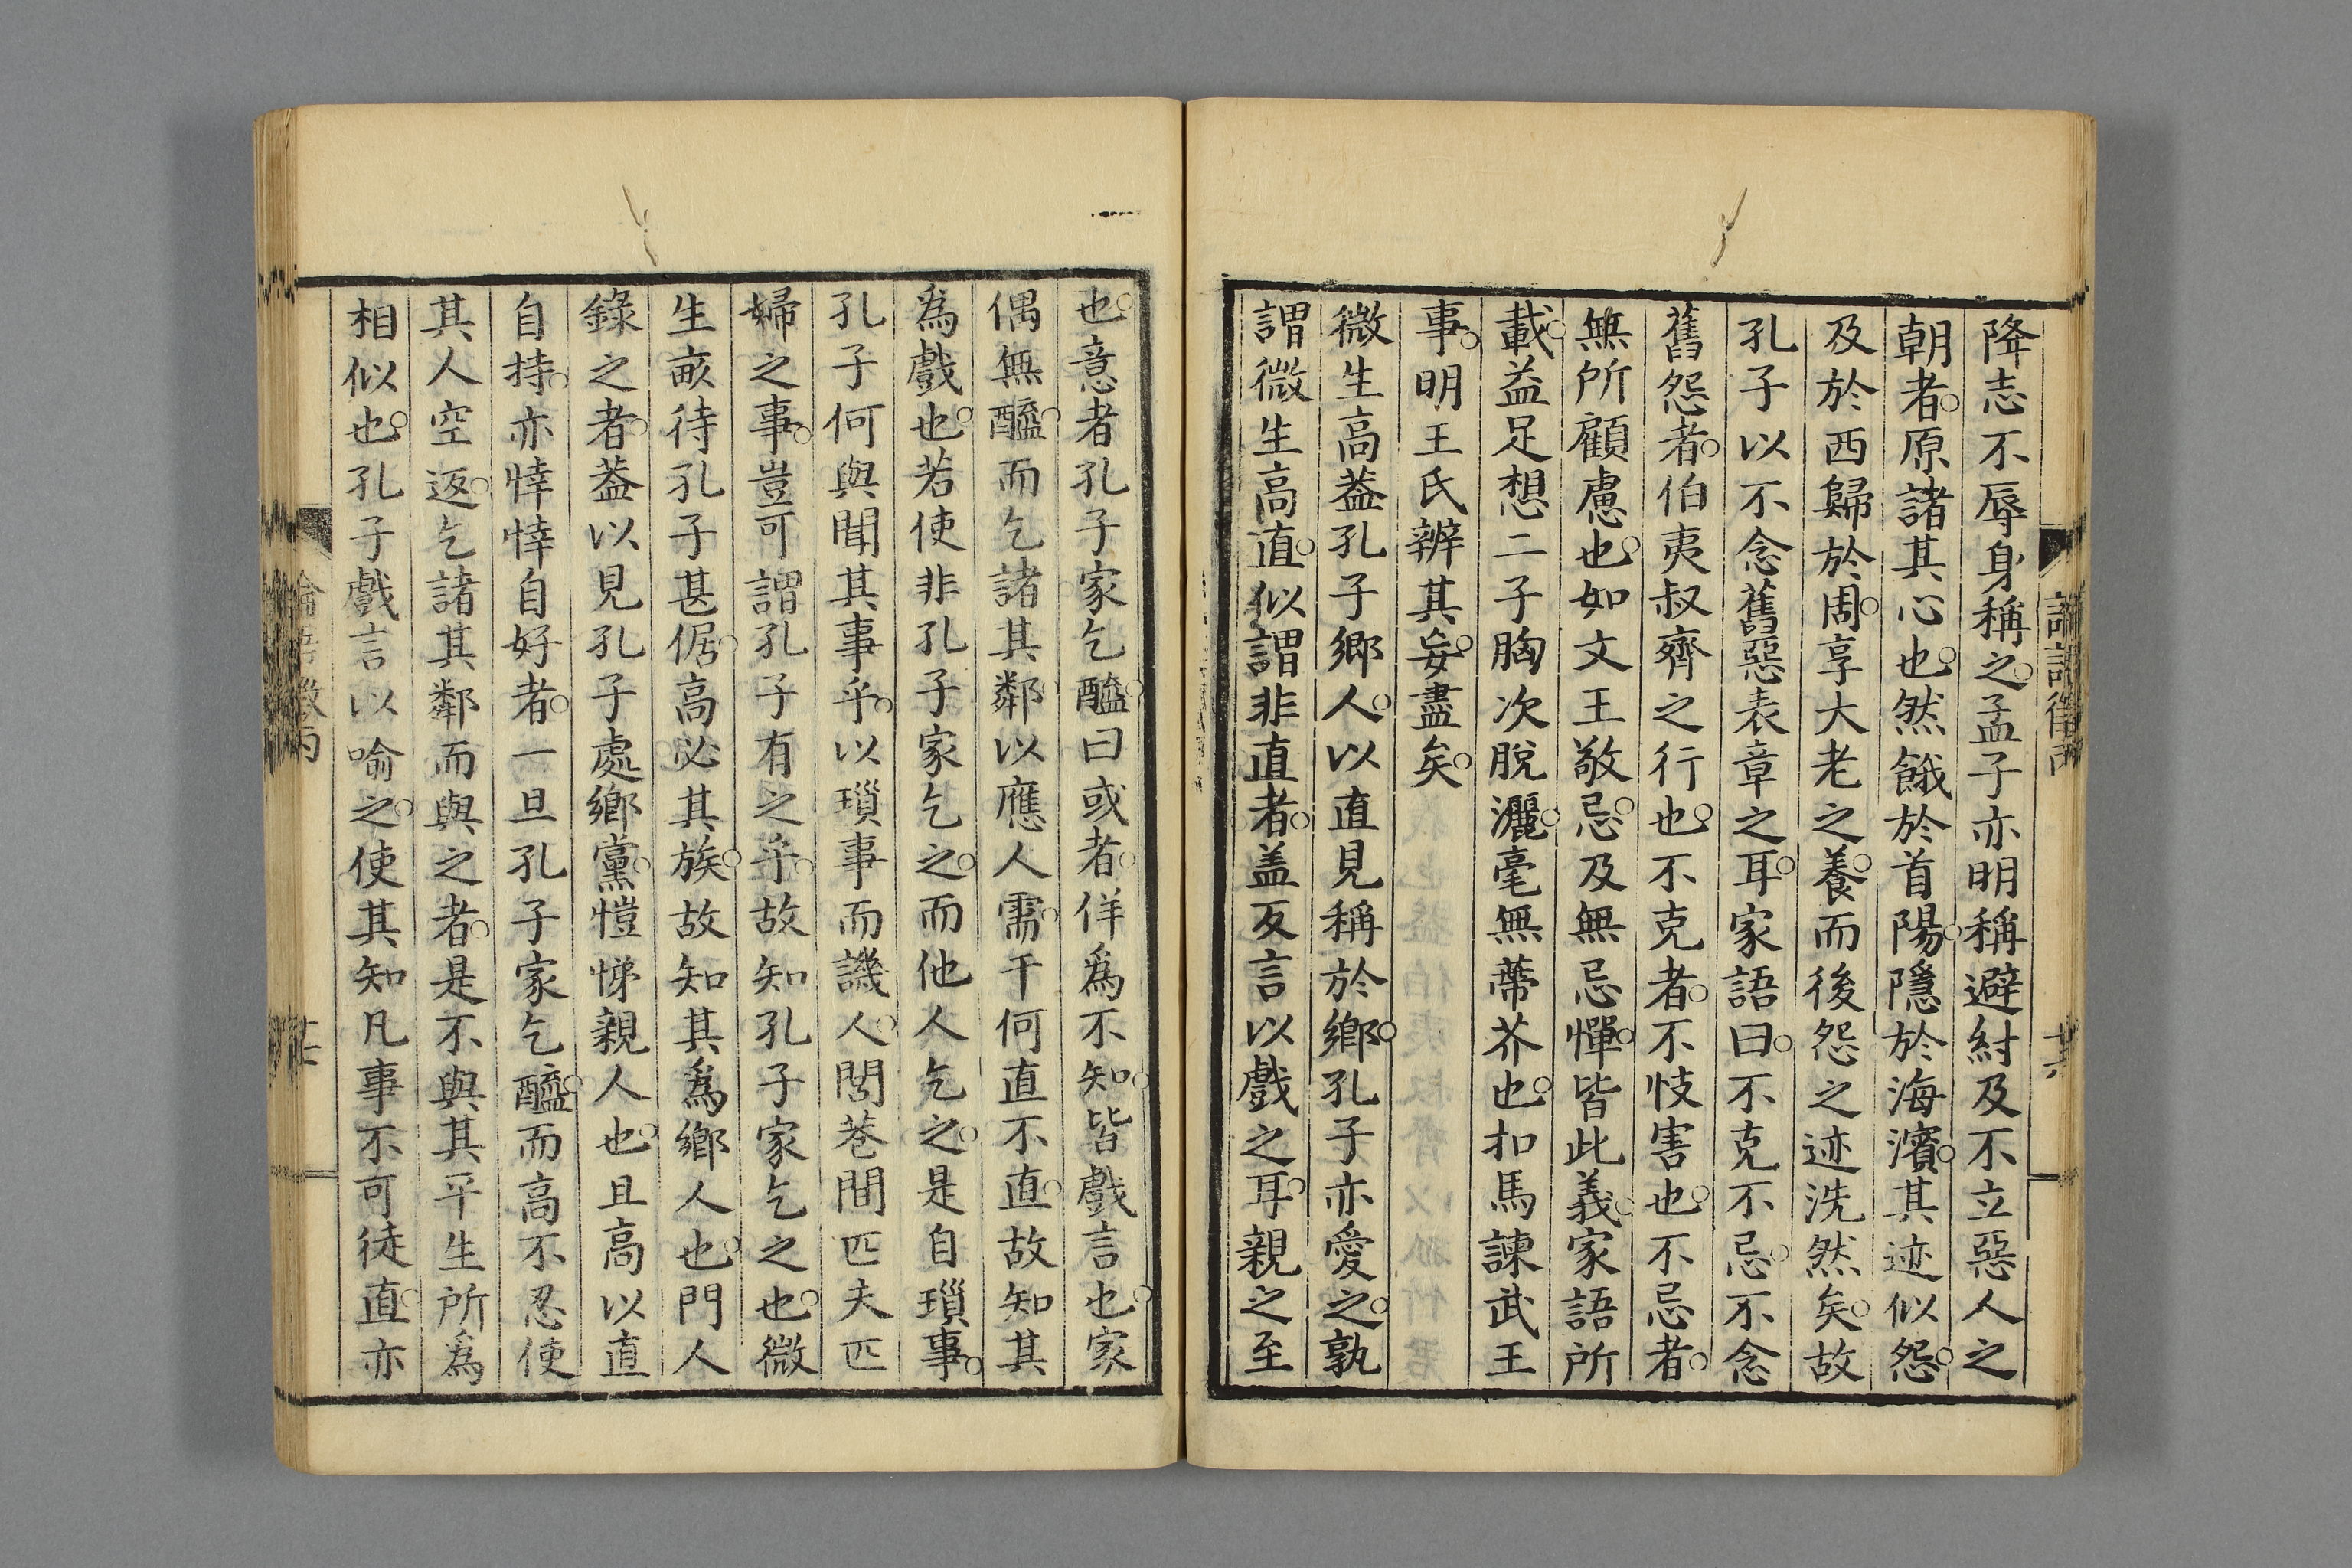 降志不辱身稱之孟子亦明稱避紂及不立惡人之
朝者原諸其心也然餓於首陽隱於海濱其迹似怨
及於西歸於周享大老之養而後怨之迹洗然矣故
孔子以不念舊惡表章之耳家語曰不克不忌不念
舊怨者伯夷叔齊之行也不克者不忮害也不忌者
無所顧慮也如文王敬忌及無忌憚皆此義家語所
載益足想二子胸次脫灑毫無蔕芥也扣馬諫武王
事明王氏辨其妄盡矣
微生高葢孔子鄉人以直見稱於鄉孔子亦愛之孰
謂微生高直似謂非直者盖反言以戲之耳親之至
也意者孔子家乞醯曰或者佯爲不知皆戲言也家
偶無醯而乞諸其鄰以應人需干何直不直故知其
爲戲也若使非孔子家乞之而他人乞之是自瑣事
孔子何與聞其事乎以瑣事而譏人閭巷間匹夫匹
婦之事豈可謂孔子有之乎故知孔子家乞之也微
生畝待孔子甚倨高必其族故知其爲鄉人也門人
錄之者葢以見孔子處鄉黨愷悌親人也且高以直
自持亦悻悻自好者一旦孔子家乞醯而高不忍使
其人空返乞諸其鄰而與之者是不與其平生所爲
相似也孔子戲言以喻之使其知凡事不可徒直亦
論語徵丙